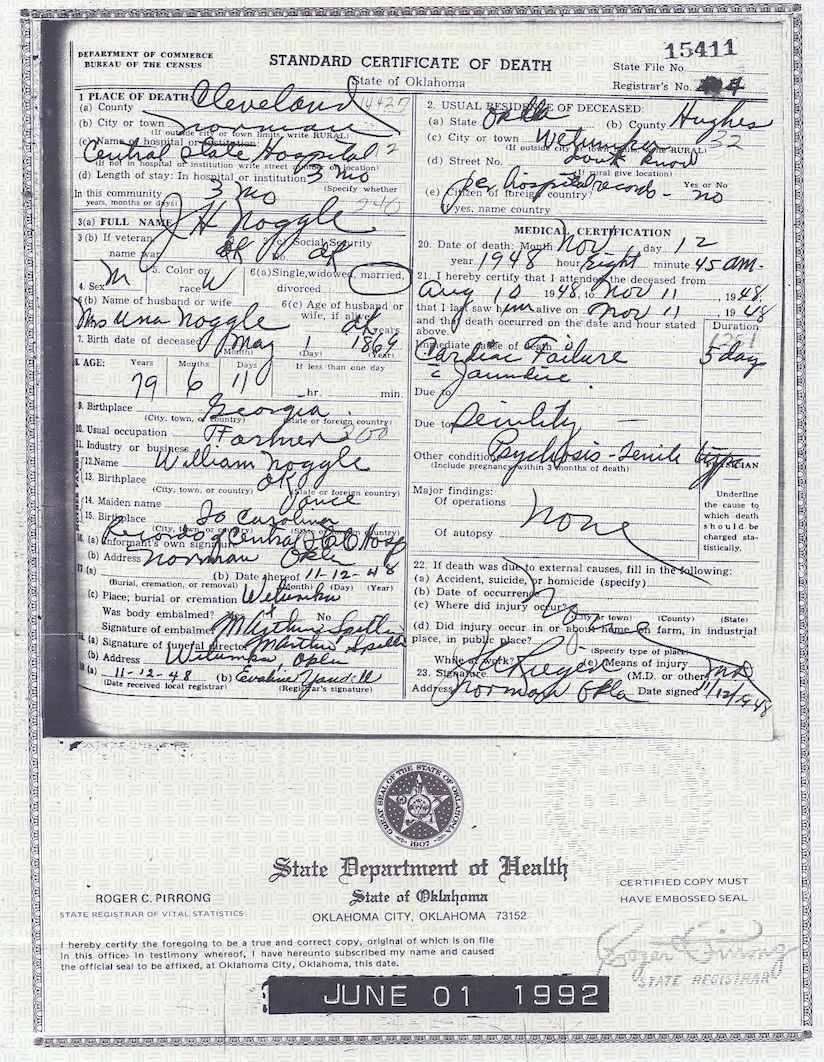 DEPARTMENT OF COMMERCE
BUREAU OF THE CENSUS
STANDARD CERTIFICATE OF DEATH
State of Oklahoma
15411
State File No.
Registrar's No. 4
1 PLACE OF DEATH:
(a) County Cleveland
(b) City or town Norman
(If outside city or town limits, write RURAL)
(c) Name of hospital or institution:
Central State Hospital
(If not in hospital or institution write street number or location)
(d) Length of stay: In hospital or institution 3 mo
(Specify whether
In this community 3 mo
years, months or days)
3(a) FULL NAME J H Noggle
3(b) If veteran, name war dk
3(c) Social Security No. dk
4. Sex M
5. Color or race W
6(a) Single, widowed, married, divorced
6(b) Name of husband or wife
Mrs Una Noggle
6(c) Age of husband or wife, if alive dk years
7. Birth date of deceased May 1 1869
(Month) (Day) (Year)
8. AGE: Years Months Days If less than one day
79 6 11 hr. min.
9. Birthplace Georgia
(City, town, or county) (State or foreign country)
10. Usual occupation Farmer
11. Industry or business
12. Name William Noggle
13. Birthplace dk
(City, town, or country) (State or foreign country)
14. Maiden name
15. Birthplace So Carolina
(City, town, or county) (State or foreign country)
16. (a) Informant's own signature Records of Central
(b) Address Norman Okla
(a) (b) Date thereof 11-12-48
(Burial, cremation, or removal) (Month) (Day) (Year)
(c) Place; burial or cremation Wetumka
Was body embalmed? No
Signature of embalmer
(a) Signature of funeral director
(b) Address Wetumka, Okla
(a) 11-12-48 (b)
(Date received local registrar) (Registrar's signature)
2. USUAL RESIDENCE OF DECEASED:
(a) State Okla (b) County Hughes
(c) City or town Wetumka
(If outside city or town limits, write RURAL)
(d) Street No. don't know
(If rural give location)
(e) Citizen of foreign country? Yes or No
per hospital records - no
If yes, name country
MEDICAL CERTIFICATION
20. Date of death: Month Nov day 12
year 1948 hour Eight minute 45 am.
21. I hereby certify that I attended the deceased from
Aug 10, 1948, to Nov 11, 1948,
that I last saw him alive on Nov 11, 1948
and that death occurred on the date and hour stated above.
Duration
Immediate cause of death
Cardiac Failure 5 day
c Jaundice
Due to
Due to Senility
Other conditions Psychosis - senile type
(Include pregnancy within 3 months of death)
PHYSICIAN
Major findings:
Of operations
Of autopsy none
Underline
the cause
to which
death
should be
charged sta-
tistically.
22. If death was due to external causes, fill in the following:
(a) Accident, suicide, or homicide (specify)
(b) Date of occurrence
(c) Where did injury occur?
(City or town) (County) (State)
(d) Did injury occur in or about home, on farm, in industrial
place, in public place?
(Specify type of place)
While at work? (e) Means of injury
23. Signature (M.D. or other)
Address Norman Okla Date signed 11/12/1948
GREAT SEAL OF THE STATE OF OKLAHOMA
1907
State Department of Health
State of Oklahoma
OKLAHOMA CITY, OKLAHOMA 73152
ROGER C. PIRRONG
STATE REGISTRAR OF VITAL STATISTICS
CERTIFIED COPY MUST
HAVE EMBOSSED SEAL
I hereby certify the foregoing to be a true and correct copy, original of which is on file
in this office. In testimony whereof, I have hereunto subscribed my name and caused
the official seal to be affixed, at Oklahoma City, Oklahoma, this date.
Roger C Pirrong
STATE REGISTRAR
JUNE 01 1992